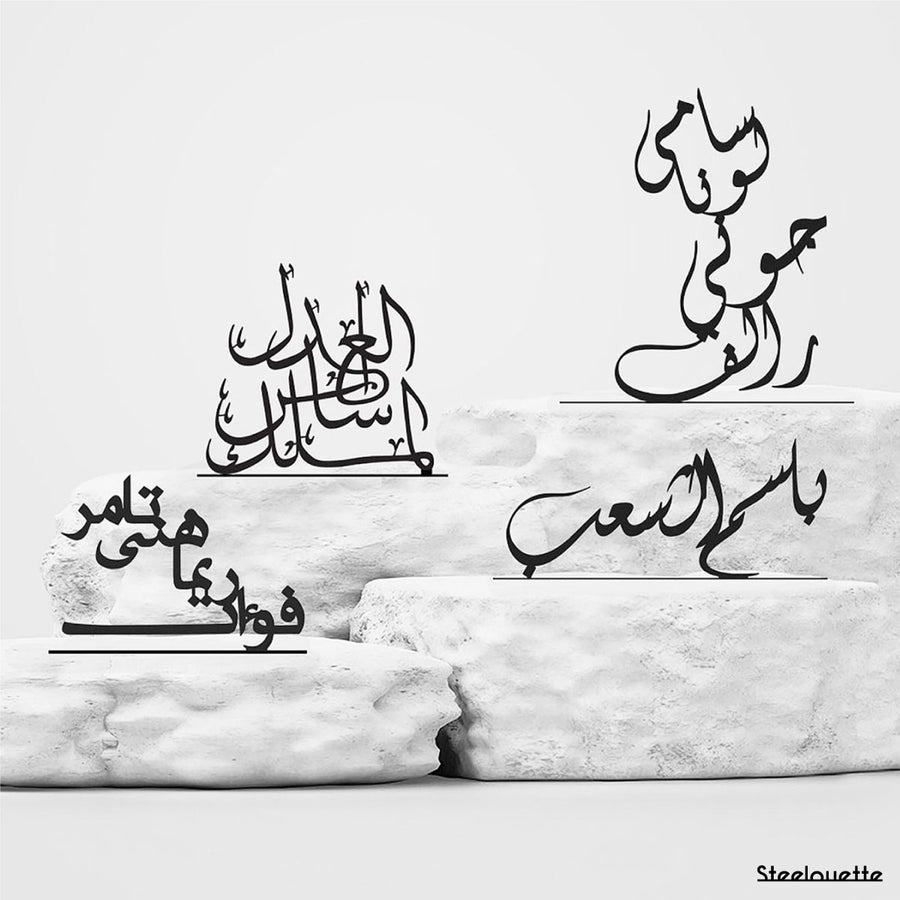 سامي
لونا
جوني
رالف
العدل
اساس
الملك
باسم الشعب
تامر
ريما
فؤاد
Steelouette